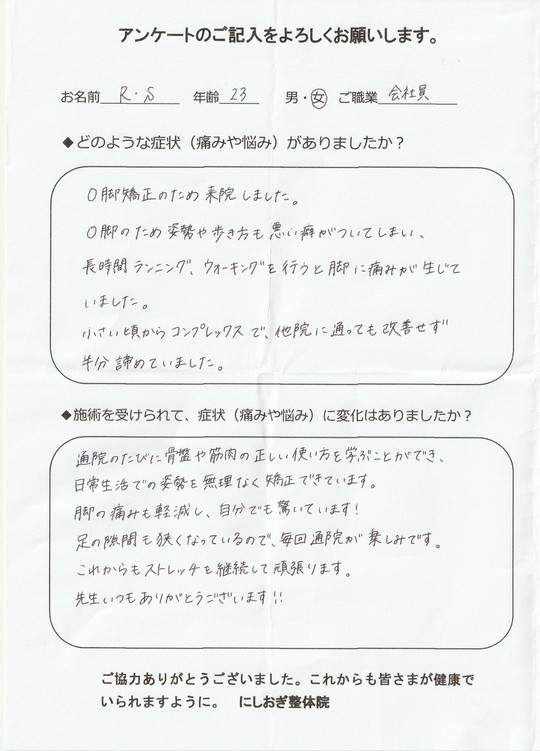 アンケートのご記入をよろしくお願いします。
お名前 R・S 年齢 23 男・女 ご職業 会社員
◆どのような症状（痛みや悩み）がありましたか？
O脚矯正のため来院しました。
O脚のため姿勢や歩き方も悪い癖がついてしまい、
長時間ランニング、ウォーキングを行うと脚に痛みが生じて
いました。
小さい頃からコンプレックスで、他院に通っても改善せず
半分諦めていました。
◆施術を受けられて、症状（痛みや悩み）に変化はありましたか？
通院のたびに骨盤や筋肉の正しい使い方を学ぶことができ、
日常生活での姿勢を無理なく矯正できています。
脚の痛みも軽減し、自分でも驚いています!
足の隙間も狭くなっているので、毎回通院が楽しみです。
これからもストレッチを継続して頑張ります。
先生いつもありがとうございます!!
ご協力ありがとうございました。これからも皆さまが健康で
いられますように。 にしおぎ整体院